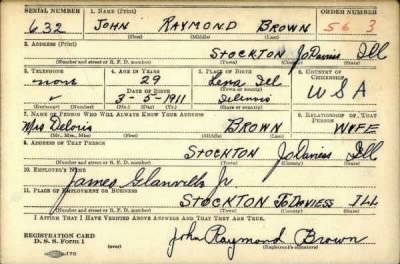 SERIAL NUMBER 1. NAME (Print) ORDER NUMBER
632 JOHN RAYMOND BROWN 563
(First) (Middle) (Last)
2. ADDRESS (Print)
STOCKTON Jo Daviess Ill
(Number and street or R. F. D. number) (Town) (County) (State)
3. TELEPHONE 4. AGE IN YEARS 5. PLACE OF BIRTH 6. COUNTRY OF CITIZENSHIP
non 29 Lena Ill
DATE OF BIRTH (Town or county)
3-5-1911 Illinois U S A
(Exchange) (Number) (Mo.) (Day) (Yr.) (State or country)
7. NAME OF PERSON WHO WILL ALWAYS KNOW YOUR ADDRESS 8. RELATIONSHIP OF THAT PERSON
Mrs Deloris BROWN WIFE
(Mr., Mrs., Miss) (First) (Middle) (Last)
9. ADDRESS OF THAT PERSON
STOCKTON Jo Daviess Ill
(Number and street or R. F. D. number) (Town) (County) (State)
10. EMPLOYER'S NAME
James Glanville Jr
11. PLACE OF EMPLOYMENT OR BUSINESS
STOCKTON JO DAVIESS ILL
(Number and street or R. F. D. number) (Town) (County) (State)
I AFFIRM THAT I HAVE VERIFIED ABOVE ANSWERS AND THAT THEY ARE TRUE.
REGISTRATION CARD
D. S. S. Form 1 (over) John Raymond Brown
(Registrant's signature)